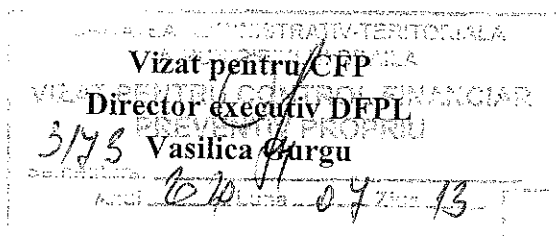 ADMINISTRATIV-TERITORIALA
Vizat pentru CFP
VIZAT PENTRU CONTROL FINANCIAR
Director executiv DFPL
PREVENTIV PROPRIU
Vasilica Gurgu
Anul Luna 07 Ziua 13